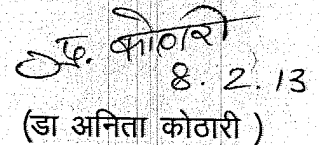 अ. कोठारी
8.2.13
(डा अनिता कोठारी )